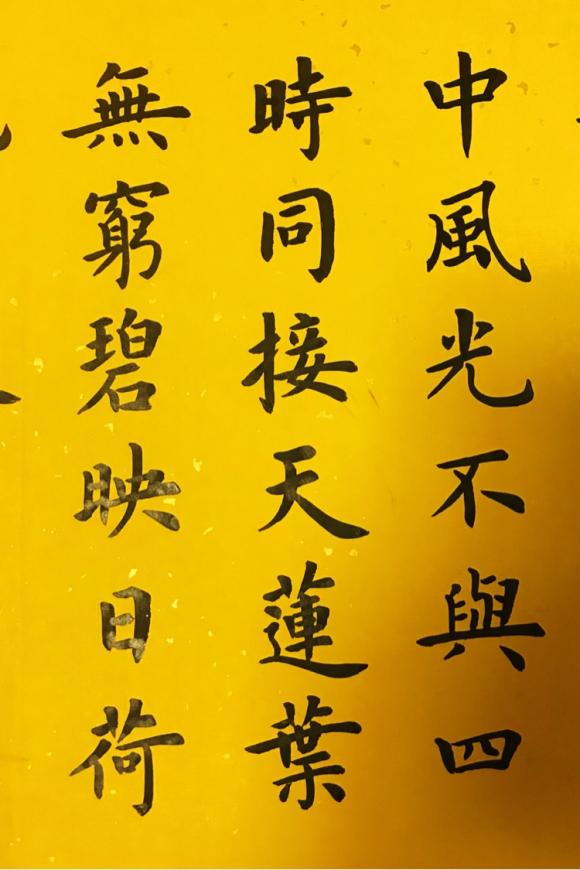 中風光不與四
時同接天蓮葉
無窮碧映日荷